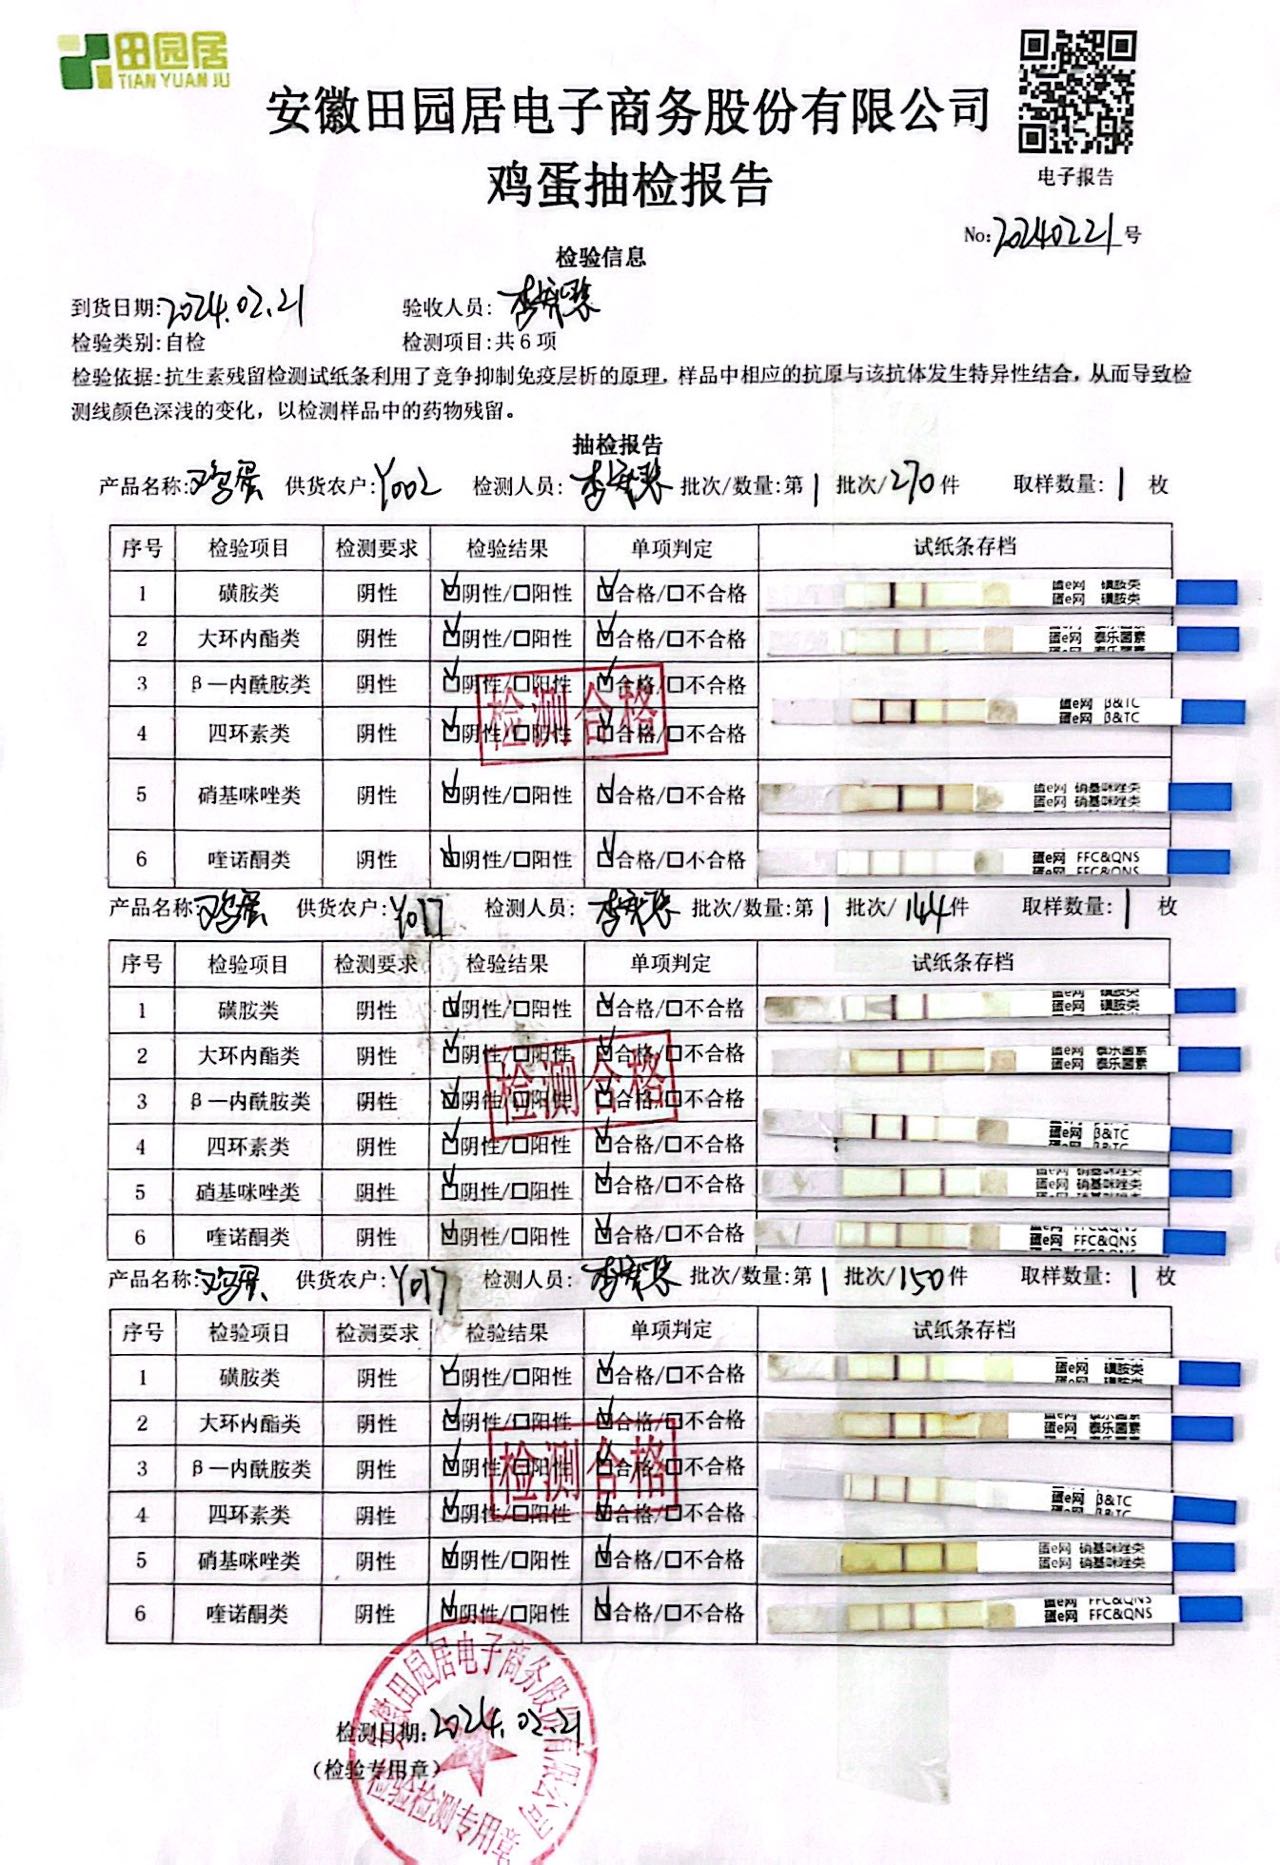 田园居
TIAN YUAN JU
安徽田园居电子商务股份有限公司
鸡蛋抽检报告
电子报告
No:20240221号
检验信息
到货日期:2024.02.21 验收人员:
检验类别:自检 检测项目:共6项
检验依据:抗生素残留检测试纸条利用了竞争抑制免疫层析的原理,样品中相应的抗原与该抗体发生特异性结合,从而导致检
测线颜色深浅的变化,以检测样品中的药物残留。
抽检报告
产品名称: 供货农户:Y002 检测人员: 批次/数量:第1批次/270件 取样数量:1枚
序号 检验项目 检测要求 检验结果 单项判定 试纸条存档
1 磺胺类 阴性 ☑阴性/□阳性 ☑合格/□不合格 蛋e网 磺胺类
蛋e网 磺胺类
2 大环内酯类 阴性 ☑阴性/□阳性 ☑合格/□不合格 蛋e网 泰乐菌素
蛋e网 泰乐菌素
3 β—内酰胺类 阴性 ☑阴性/□阳性 ☑合格/□不合格 蛋e网 β&TC
蛋e网 β&TC
4 四环素类 阴性 ☑阴性/□阳性 ☑合格/□不合格
检测合格
5 硝基咪唑类 阴性 ☑阴性/□阳性 ☑合格/□不合格 蛋e网 硝基咪唑类
蛋e网 硝基咪唑类
6 喹诺酮类 阴性 ☑阴性/□阳性 ☑合格/□不合格 蛋e网 FFC&QNS
蛋e网 FFC&QNS
产品名称: 供货农户:Y017 检测人员: 批次/数量:第1批次/144件 取样数量:1枚
序号 检验项目 检测要求 检验结果 单项判定 试纸条存档
1 磺胺类 阴性 ☑阴性/□阳性 ☑合格/□不合格 蛋e网 磺胺类
蛋e网 磺胺类
2 大环内酯类 阴性 ☑阴性/□阳性 ☑合格/□不合格 蛋e网 泰乐菌素
蛋e网 泰乐菌素
3 β—内酰胺类 阴性 ☑阴性/□阳性 ☑合格/□不合格
检测合格
4 四环素类 阴性 ☑阴性/□阳性 ☑合格/□不合格 蛋e网 β&TC
蛋e网 β&TC
5 硝基咪唑类 阴性 ☑阴性/□阳性 ☑合格/□不合格 蛋e网 硝基咪唑类
蛋e网 硝基咪唑类
6 喹诺酮类 阴性 ☑阴性/□阳性 ☑合格/□不合格 蛋e网 FFC&QNS
蛋e网 FFC&QNS
产品名称: 供货农户:Y017 检测人员: 批次/数量:第1批次/150件 取样数量:1枚
序号 检验项目 检测要求 检验结果 单项判定 试纸条存档
1 磺胺类 阴性 ☑阴性/□阳性 ☑合格/□不合格 蛋e网 磺胺类
蛋e网 磺胺类
2 大环内酯类 阴性 ☑阴性/□阳性 ☑合格/□不合格 蛋e网 泰乐菌素
蛋e网 泰乐菌素
3 β—内酰胺类 阴性 ☑阴性/□阳性 ☑合格/□不合格
检测合格
4 四环素类 阴性 ☑阴性/□阳性 ☑合格/□不合格 蛋e网 β&TC
蛋e网 β&TC
5 硝基咪唑类 阴性 ☑阴性/□阳性 ☑合格/□不合格 蛋e网 硝基咪唑类
蛋e网 硝基咪唑类
6 喹诺酮类 阴性 ☑阴性/□阳性 ☑合格/□不合格 蛋e网 FFC&QNS
蛋e网 FFC&QNS
安徽田园居电子商务股份有限公司
检测日期:2024.02.21
(检验专用章)
检验检测专用章